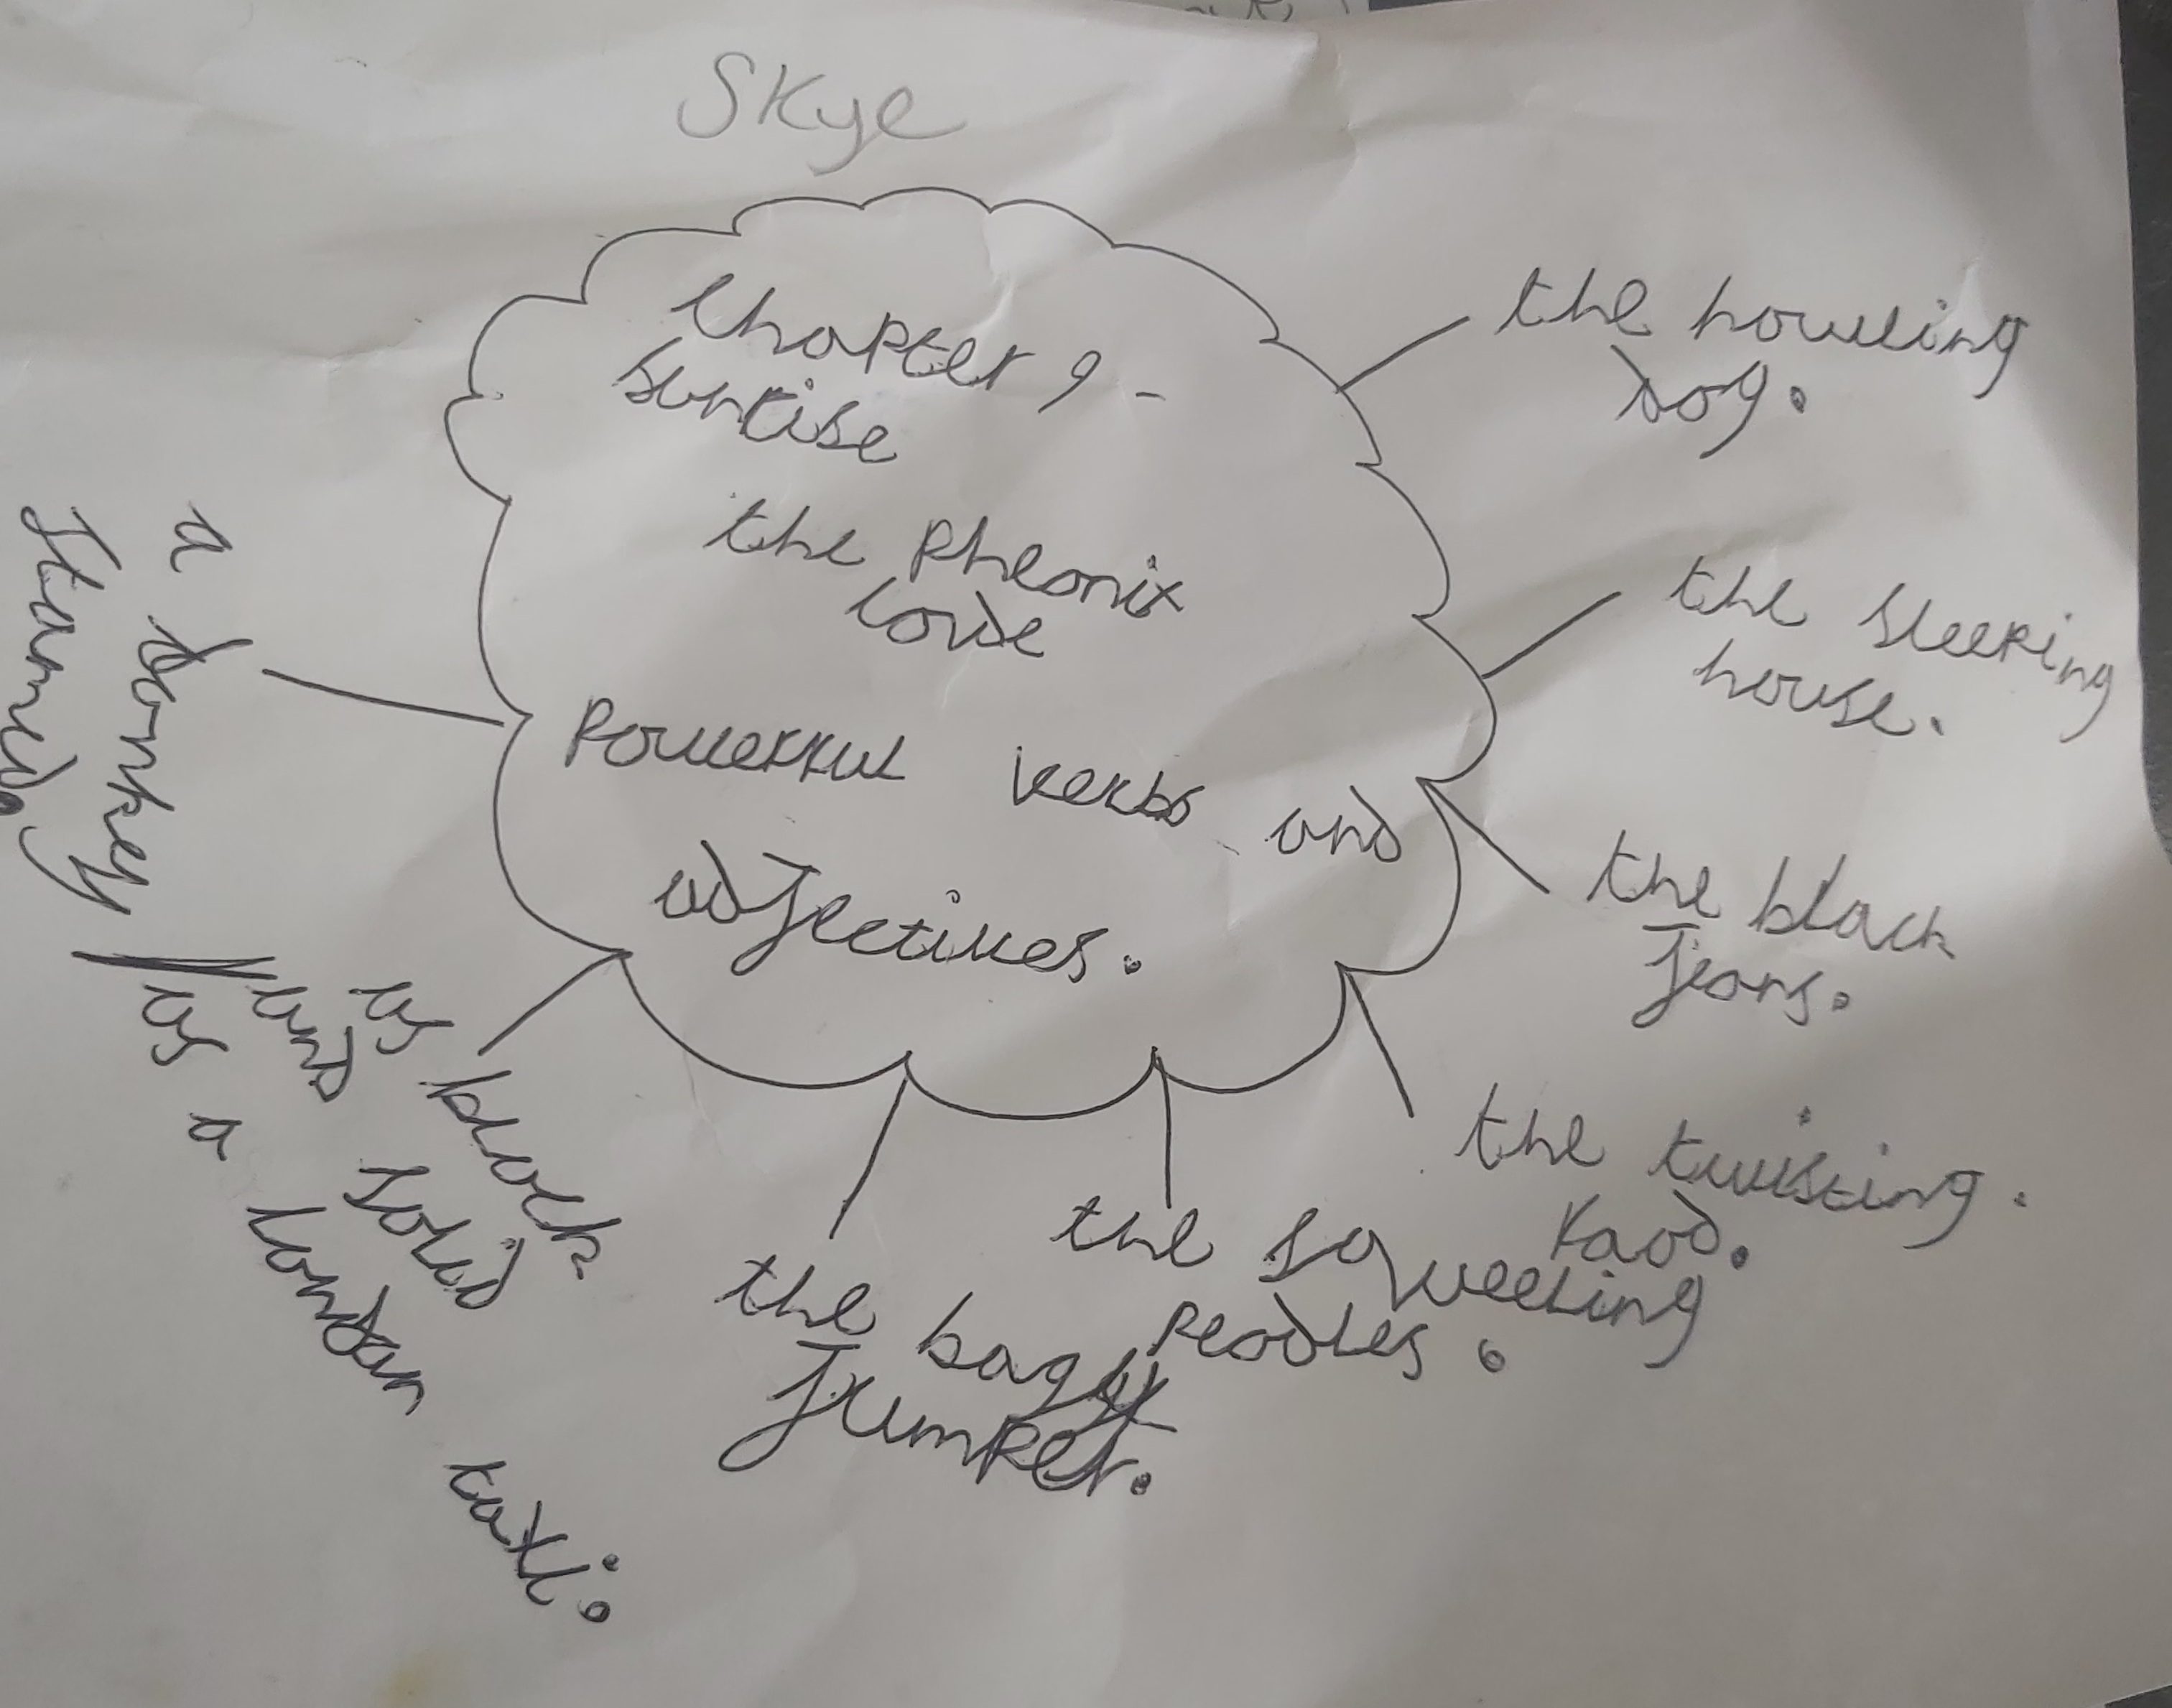 Skye
Chapter 9 -
Sunrise
the Pheonix
Code
Powerful verbs and
adjectives.
the howling
dog.
the sleeping
house.
the black
jeans.
the twisting.
raod.
the squeeling
peodles.
the baggy
Jumper.
as block
and solid
as a london
taxi.
a donkey
Itamed.